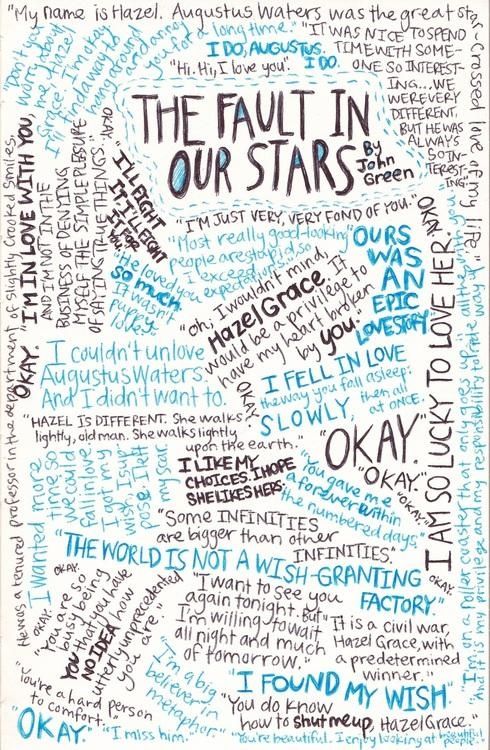 "My name is Hazel. Augustus Waters was the great star-crossed love of my life."
"Don't you
worry about
me, Hazel
Grace. I'm okay.
I'll find a way to
hang around
and annoy
you for a long time."
I DO, AUGUSTUS.
I DO.
"Hi. Hi, I love you".
"IT WAS NICE TO SPEND
TIME WITH SOME-
ONE SO INTEREST-
ING... WE
WERE VERY
DIFFERENT,
BUT HE WAS
ALWAYS
SO IN-
TEREST-
ING."
THE FAULT IN
OUR STARS
By
John
Green
"I'M IN LOVE WITH YOU,
AND I'M NOT IN THE
BUSINESS OF DENYING
MYSELF THE SIMPLE PLEASURE
OF SAYING TRUE THINGS."
OKAY.
"I'LL FIGHT
IT. I'LL FIGHT
IT FOR
YOU."
"I'M JUST VERY, VERY FOND OF YOU."
"Most really good-looking
people are stupid, so
I exceed
expectations."
OURS
WAS
AN
EPIC
LOVE STORY
"He loved you
so much.
It wasn't
puppy
love."
"oh, I wouldn't mind,
Hazel Grace. It
would be a privilege to
have my heart broken
by you."
OKAY.
I AM SO LUCKY TO LOVE HER,
OKAY.
"I'm on a roller coaster that only goes up
He was a tenured professor in the department of slightly crooked smiles.
OKAY.
I couldn't unlove
Augustus Waters.
And I didn't want to.
I FELL IN LOVE
the way you fall asleep:
SLOWLY, then all
at ONCE.
OKAY.
"HAZEL IS DIFFERENT. She walks
lightly, old man. She walks lightly
upon the earth."
"OKAY."
"OKAY."
"OKAY."
I wanted more
time so
we could
fall in love
I got my
wish I sup-
pose. I left
my scar.
I LIKE MY
CHOICES. I HOPE
SHE LIKES HERS.
"You gave me
a forever within
the numbered days."
"Some INFINITIES
are bigger than other
INFINITIES."
"THE WORLD IS NOT A WISH-GRANTING
FACTORY."
OKAY.
OKAY.
OKAY.
"You are so
busy being
YOU that you have
NO IDEA how
utterly unprecedented
you are."
"I want to see you
again tonight. But
I'm willing to wait
all night and much
of tomorrow."
"It is a civil war,
Hazel Grace, with
a predetermined
winner."
"You're a hard person
to comfort."
"I'm a big
believer in
metaphor"
"I FOUND MY WISH"
"You do know
how to shut me up, Hazel Grace."
"OKAY."
"I miss him."
"You're beautiful. I enjoy looking at beautiful
people."